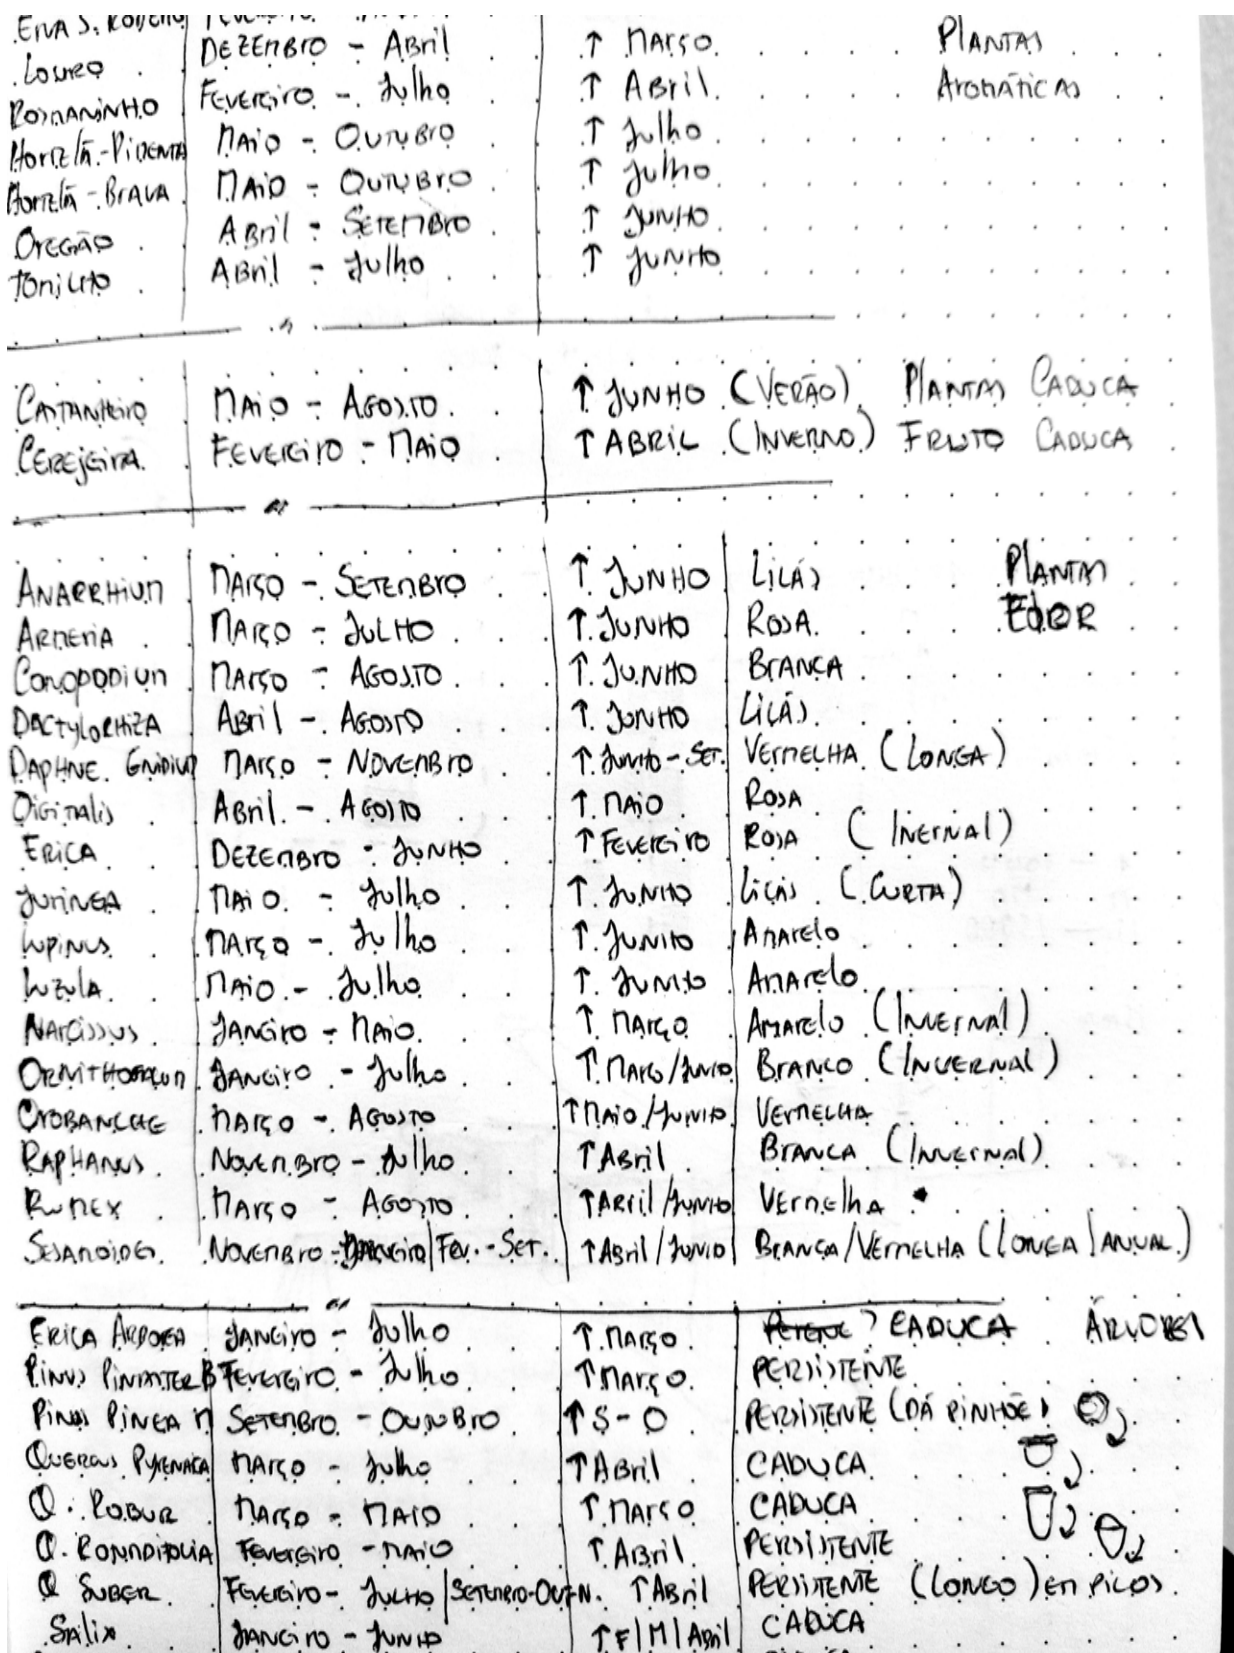 Erva S. Roberto Fevereiro
Louro Dezembro - Abril ↑ Março Plantas
Rosmaninho Fevereiro - Julho ↑ Abril Aromáticas
Hortelã-Pimenta Maio - Outubro ↑ Julho
Hortelã-Brava Maio - Outubro ↑ Julho
Oregão Abril - Setembro ↑ Junho
Tomilho Abril - Julho ↑ Junho
Castanheiro Maio - Agosto ↑ Junho (Verão) Plantas Caduca
Cerejeira Fevereiro - Maio ↑ Abril (Inverno) Fruto Caduca
Anarrhium Março - Setembro ↑ Junho Lilás Plantas
Armeria Março - Julho ↑ Junho Rosa
Conopodium Março - Agosto ↑ Junho Branca
Dactylorhiza Abril - Agosto ↑ Junho Lilás
Daphne Gnidium Março - Novembro ↑ Junho - Set. Vermelha (Longa)
Digitalis Abril - Agosto ↑ Maio Rosa
Erica Dezembro - Junho ↑ Fevereiro Rosa (Invernal)
Jurinea Maio - Julho ↑ Junho Lilás (Curta)
Lupinus Março - Julho ↑ Junho Amarelo
Luzula Maio - Julho ↑ Junho Amarelo
Narcissus Janeiro - Maio ↑ Março Amarelo (Invernal)
Ornithogalum Janeiro - Julho ↑ Março/Junho Branco (Invernal)
Orobanche Março - Agosto ↑ Maio/Junho Vermelha
Raphanus Novembro - Julho ↑ Abril Branca (Invernal)
Rumex Março - Agosto ↑ Abril/Junho Vermelha
Sesamoides Novembro - Janeiro | Fev. - Set. ↑ Abril/Junho Branca/Vermelha (Longa | Anual)
Erica Arborea Janeiro - Julho ↑ Março ? Caduca Árvores
Pinus Pinaster B Fevereiro - Julho ↑ Março Persistente
Pinus Pinea M Setembro - Outubro ↑ S-O Persistente (Dá Pinhões)
Quercus Pyrenaica Março - Julho ↑ Abril Caduca
Q. Robur Março - Maio ↑ Março Caduca
Q. Rotundifolia Fevereiro - Maio ↑ Abril Persistente
Q Suber Fevereiro - Julho | Setembro-Out-N. ↑ Abril Persistente (Longo) em Picos
Salix Janeiro - Junho ↑ F | M | Abril Caduca